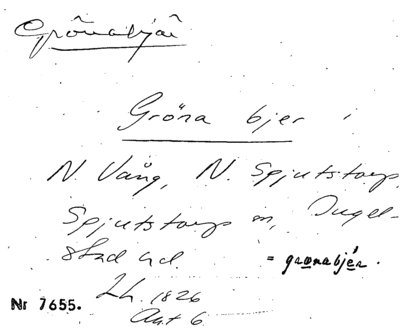 Grönabjär
Gröna bjer
N. Vång, N. Spjutstorp,
Spjutstorps sn, Ingel-
stad hd.
= grönabjér.
Nr 7655. Lh. 1826
Akt 6